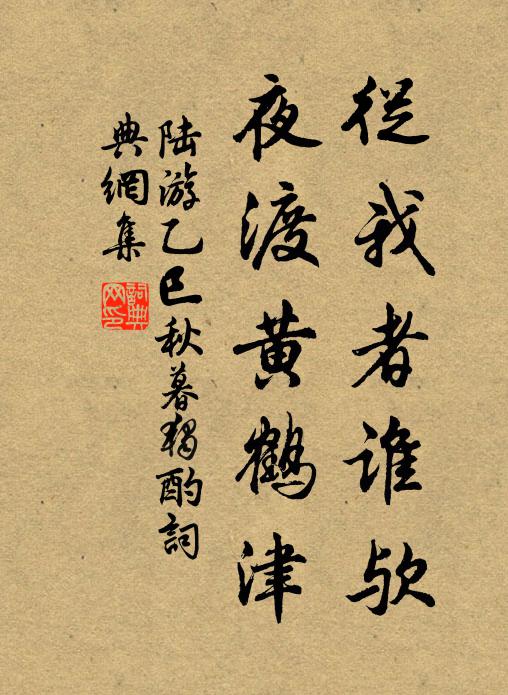 從我者誰歟
夜渡黃鶴津
陸游乙巳秋暮獨酌詞
典網集
詞典網印